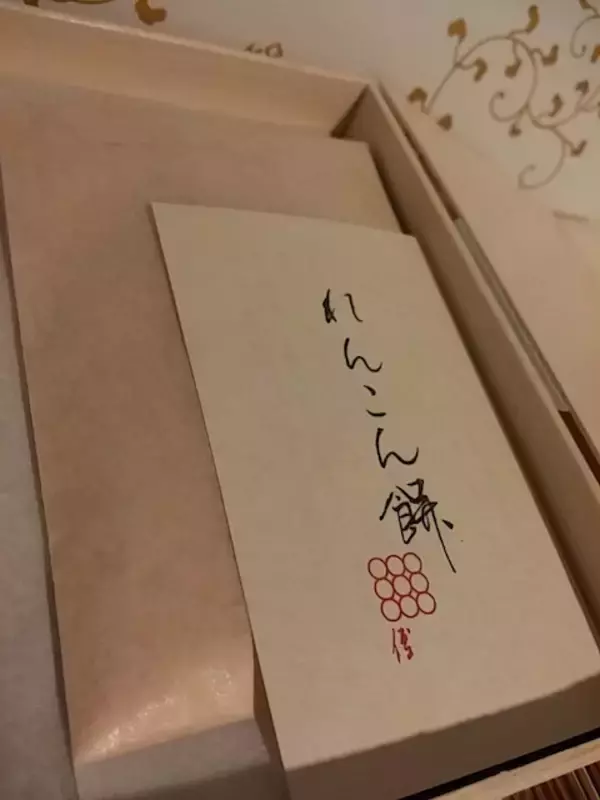 れんこん餅
傳